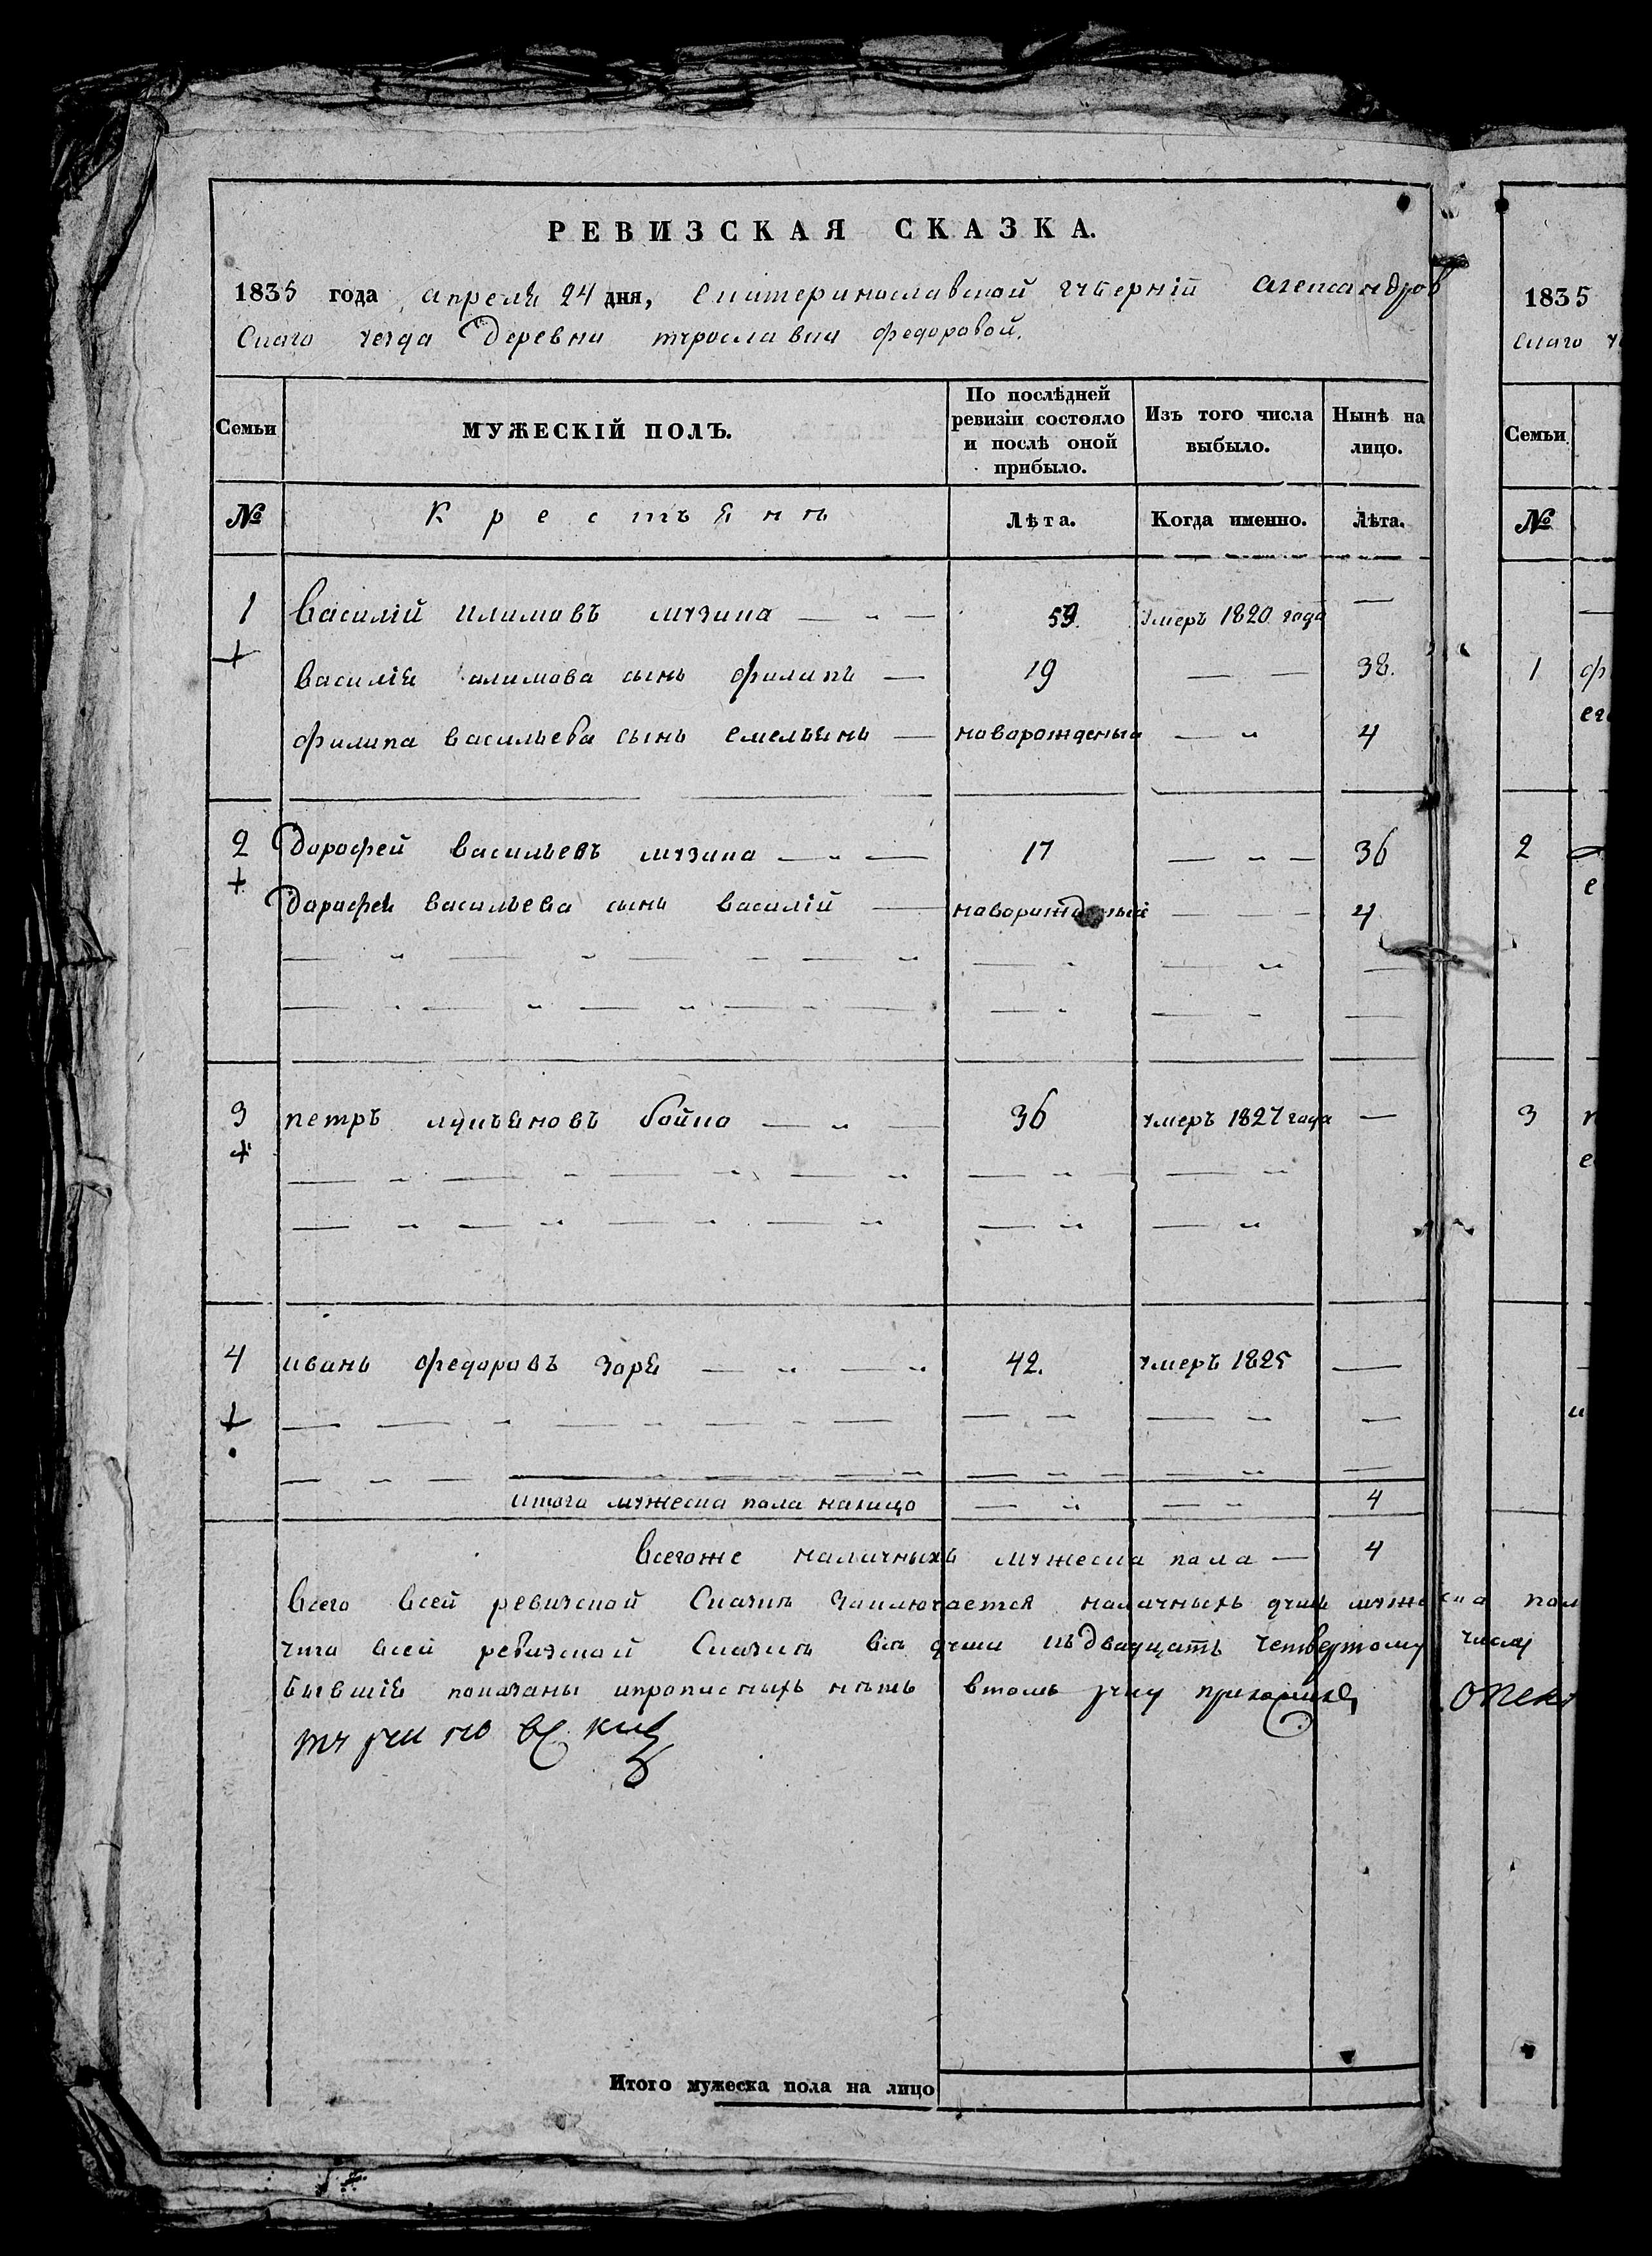 РЕВИЗСКАЯ СКАЗКА.
1835 года апреля 24 дня, Екатеринославской губерніи Александров
скаго уезда Деревни федоровой.
1835
скаго
Семьи
МУЖЕСКІЙ ПОЛЪ.
По послѣдней ревизіи состояло и послѣ оной прибыло.
Изъ того числа выбыло.
Нынѣ на лицо.
Семьи
№ Крестьянъ Лѣта. Когда именно. Лѣта. №
1 Василій Климовъ музика 59. умеръ 1820 года —
Василія климова сынъ филипъ — 19 — — 38. 1
филипа васильева сынъ емельянъ — новорожденый — 4
2 Дорофей васильевъ музика 17 — 36 2
Дорофея васильева сынъ василій — новорожденый — 4
3 петръ лукьяновъ бойко 36 умеръ 1827 года — 3
4 иванъ федоровъ заря 42. умеръ 1825 —
итого мужеска пола налицо 4
всегоже наличныхъ мужеска пола — 4
всего всей ревизской Сказки заключается наличныхъ душъ мужеска пол
что всей ревизской Сказки вси души къ двадцать четвертому числу
бывшіе показаны ипрописныхъ нетъ втомъ руку приложилъ
Итого мужеска пола на лицо